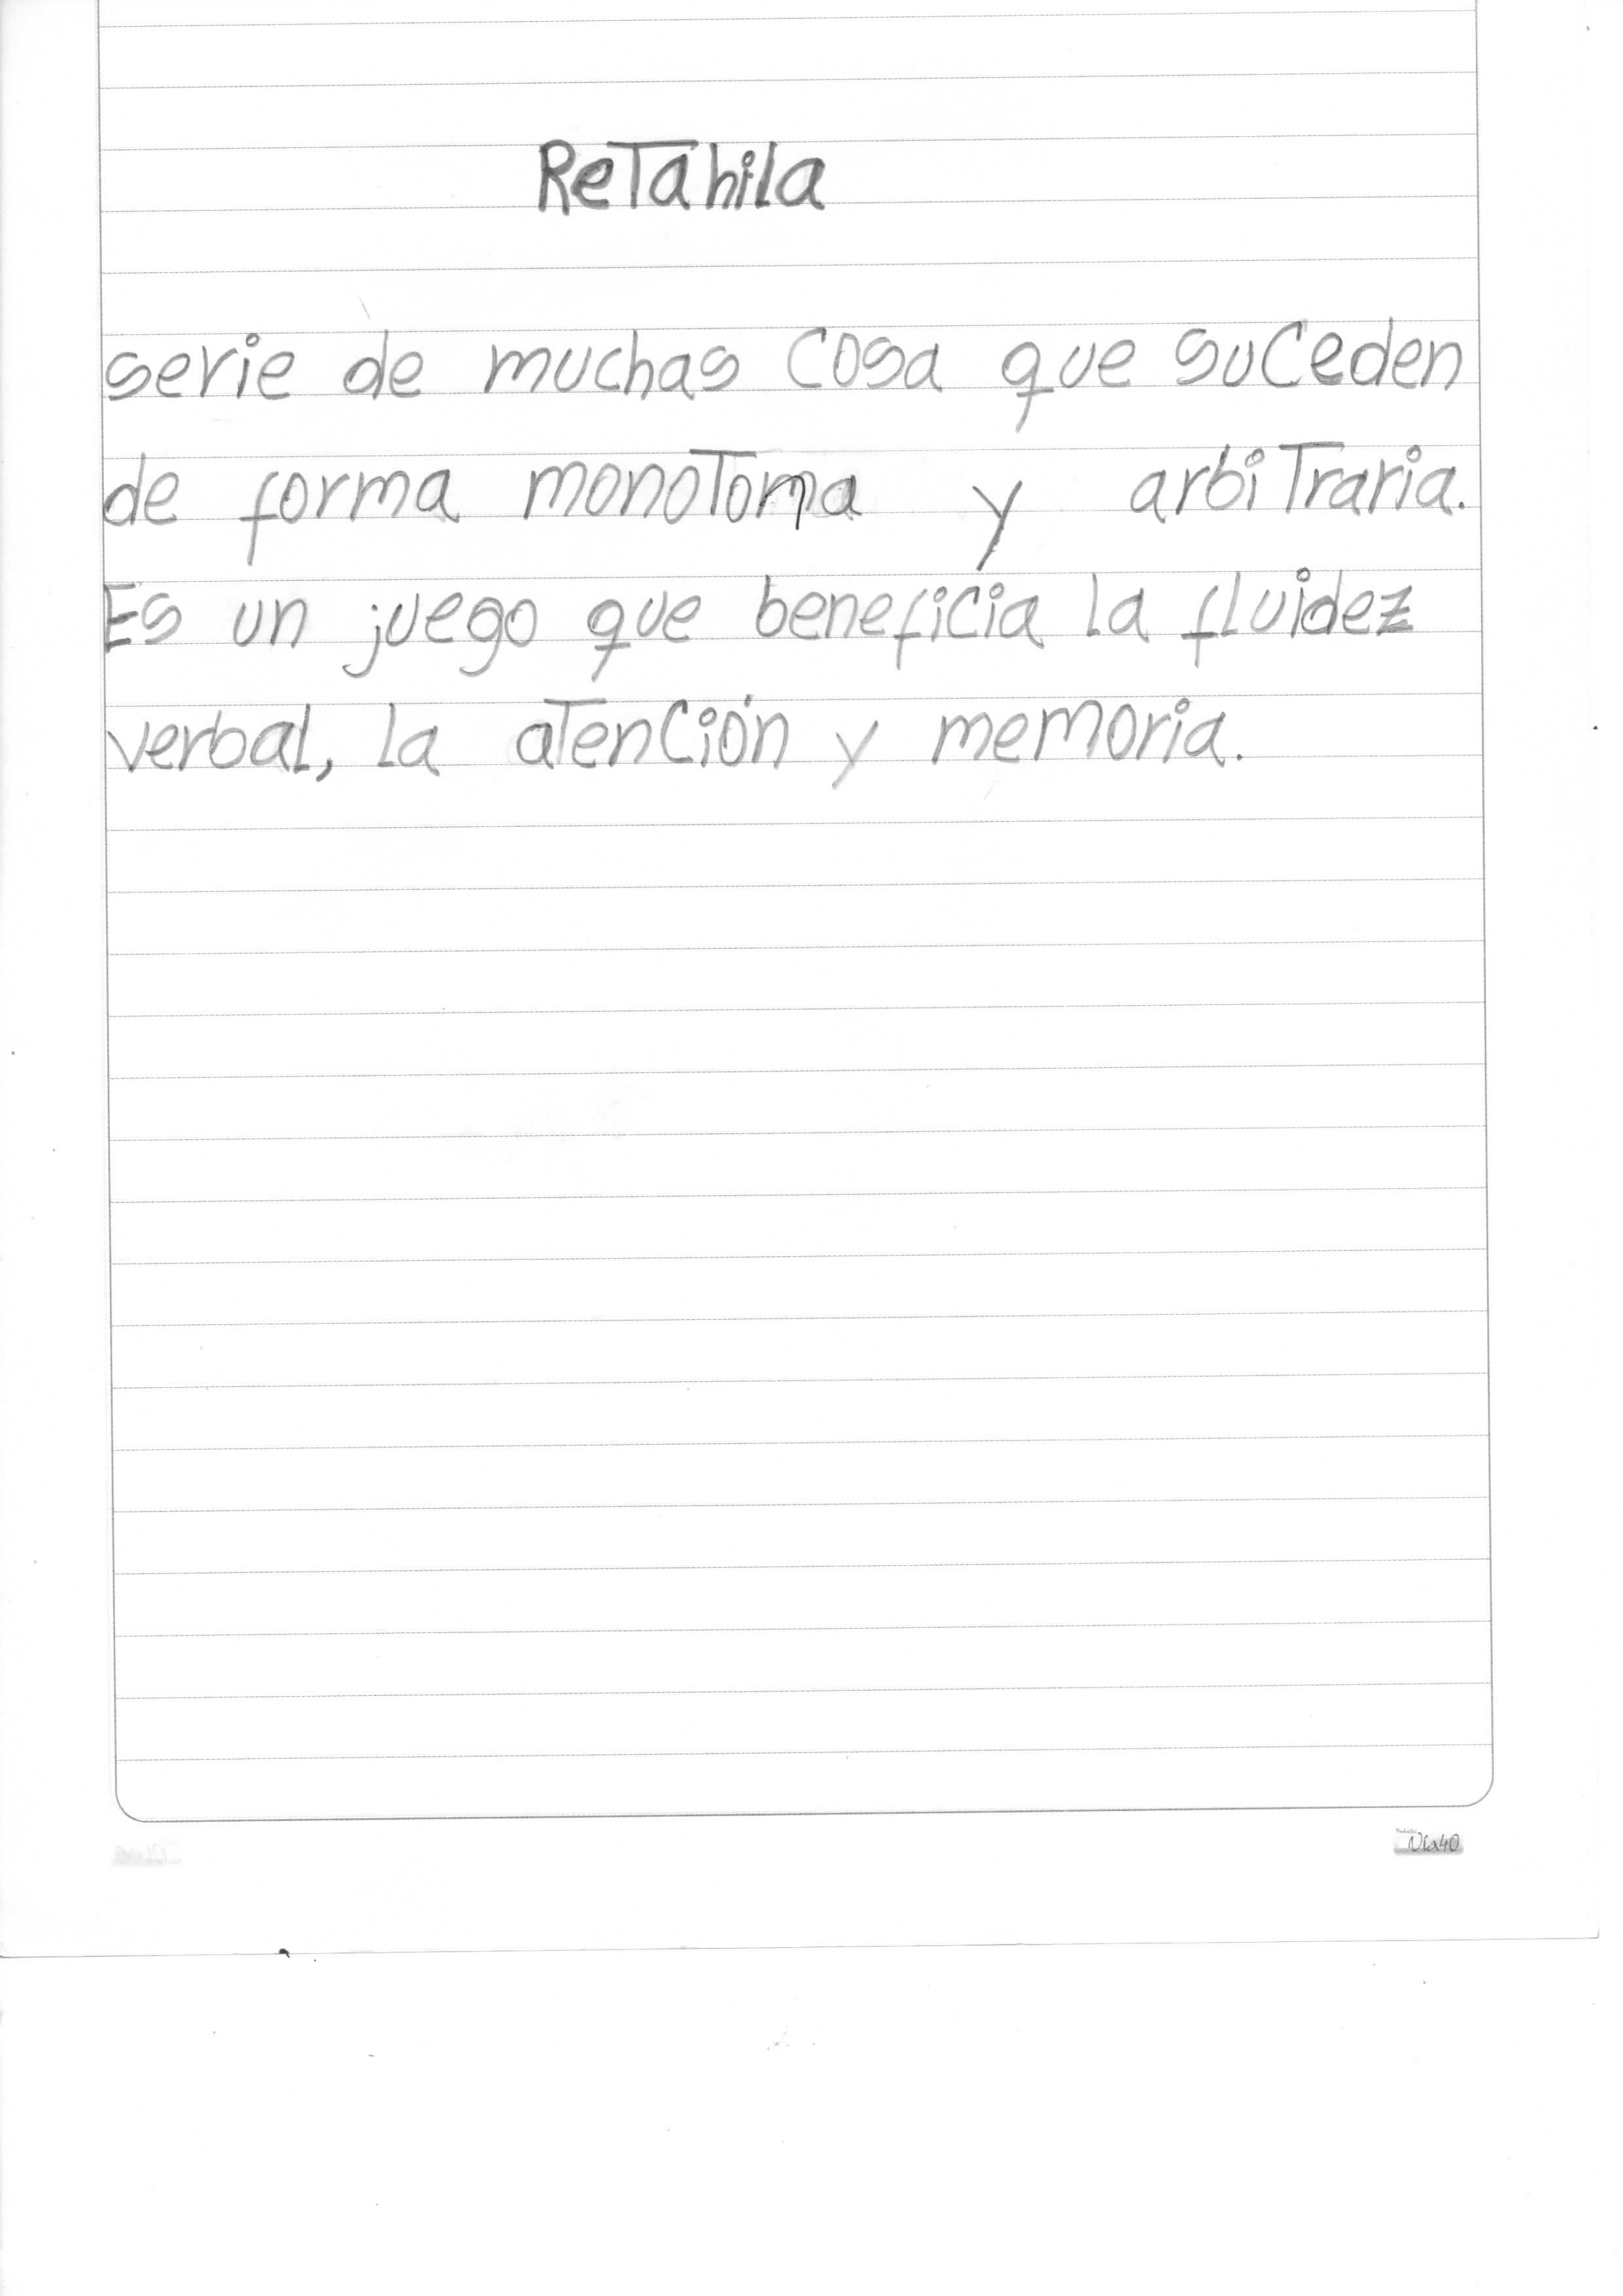 Retahila
serie de muchas cosa que suceden
de forma monotoma y arbitraria.
Es un juego que beneficia la fluidez
verbal, la atención y memoria.